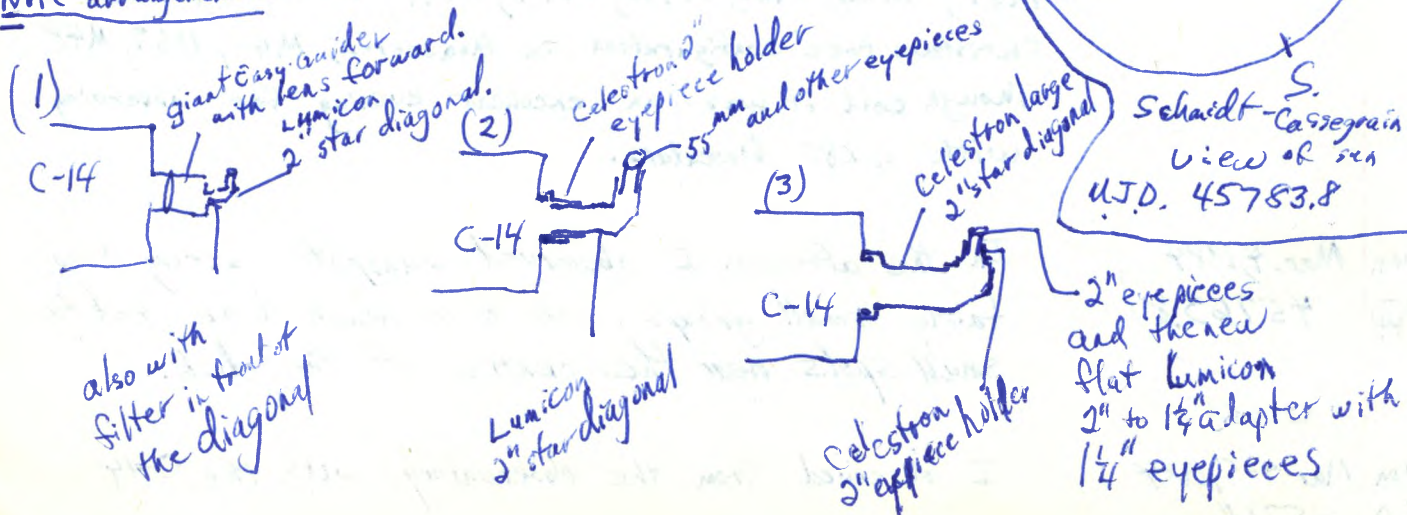 Note
(1)
giant Easy Guider
with lens forward.
Lumicon
2" star diagonal.
C-14
also with
filter in front of
the diagonal
(2)
Celestron 2"
eyepiece holder
55mm and other eyepieces
C-14
Lumicon
2" star diagonal
(3)
Celestron large
2" star diagonal
C-14
Celestron
2" eyepiece holder
2" eyepieces
and the new
flat Lumicon
2" to 1¼" adapter with
1¼" eyepieces
S.
Schmidt-Cassegrain
view of sun
M.J.D. 45783.8
Mar.
I from the